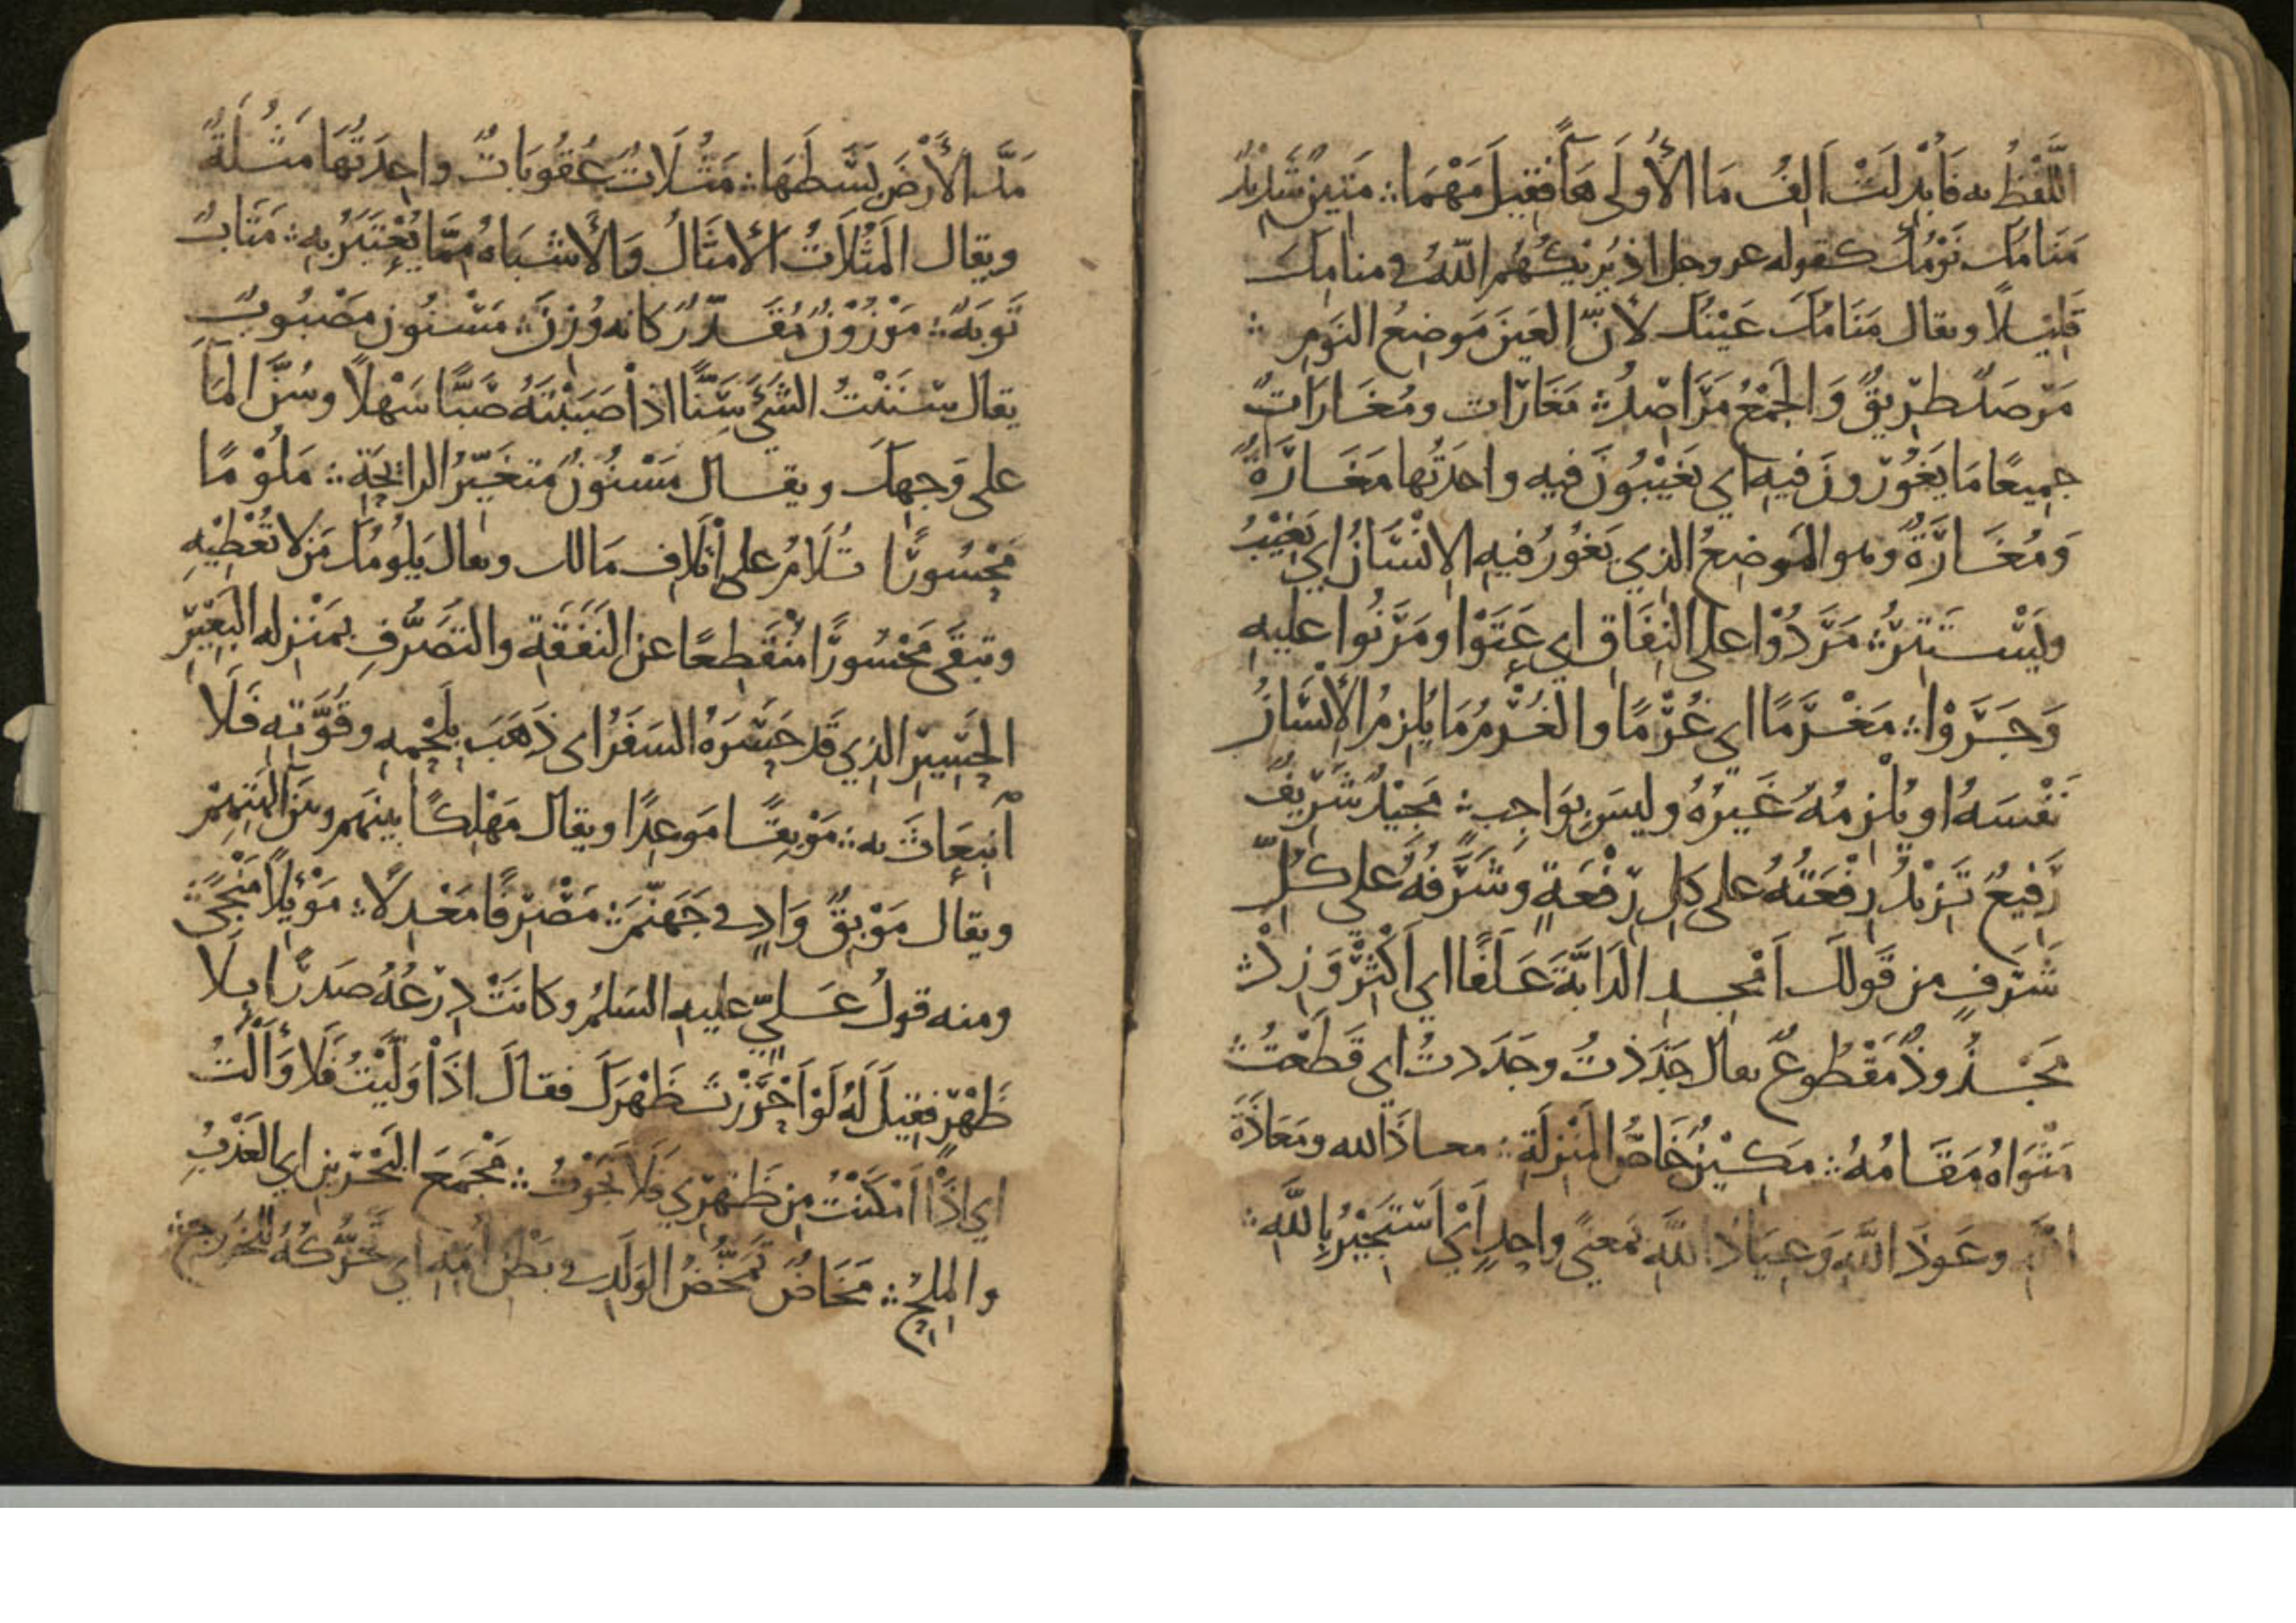 اللَّفْظُ به فَأُبْدِلَتْ اَلِفُ مَا الأُولَى هَاءً فَقِيلَ مَهْمَا ؞ مَتِينٌ شَدِيْدٌ
مَنَامُكَ نَوْمُكَ كقوله عز وجل اذ يُرِيْكَهُمُ اللهُ في منامِكَ
قَلِيْلًا ويقال مَنَامُكَ عَيْنُكَ لأَنَّ العَينَ مَوضِعُ النَومِ ؞
مَرْصَدٌ طَرِيقٌ وَالجَمْعُ مَرَاصِدُ ؞ مَغَارَات ومُغَارَاتٌ
جميعًا مَا يَغُورُونَ فيه اي يَغِيْبُونَ فيه واحدَتُها مَغَارَةٌ
وَمُغَارَةٌ وهو المَوضِعُ الذي يَغُورُ فيهِ الاِنْسَانُ اي يَغِيْبُ
ويَسْتَتِرُ ؞ مَرَدُوْا على النِفَاقِ اي عَتَوْا ومَرَنُوا عليهِ
وَجَرَوْا ؞ مَغْرَمًا اي غُرْمًا والغُرْمُ مَا يُلزِمُ الأِنْسَانُ
نَفْسَهُ او يُلْزِمُهُ غَيرُهُ وليسَ بِوَاجِبٍ ؞ مَجِيْدٌ شَرِيفٌ
رَفِيعٌ تَزِيْدُ رِفْعَتُهُ على كلِ رِفْعَةٍ وشَرَفُهُ على كُلِّ
شَرَفٍ من قَولكَ اَمْجِدِ الدَابَّةَ عَلَفًا اي اَكْثِرْ وَزِدْ ؞
مَجْذُوذٌ مَقْطُوعٌ يقال جَذَذتُ وجَدَدتُ اي قَطَعْتُ ؞
مَثْوَاهُ مُقَامُهُ ؞ مَكِيْنٌ خَاصُّ المَنْزِلَةِ ؞ معاذَ الله ومَعَاذَةَ
اللَّهِ وعَوذَ اللَّهِ وَعِيَاذَ اللَّهِ بمَعنًى واحِدٍ اَيْ اَسْتَجِيْرُ بِاللَّهِ ؞
مَدَّ الأَرْضَ بَسَطَهَا ؞ مَثُلَاتٌ عُقُوبَاتٌ واحِدَتُهَا مَثُلَةٌ
ويقال المَثُلَاتُ الأَمثَالُ وَالأَشبَاهُ مِمَّا يُعْتَبَرُ بِهِ ؞ مَتَابٌ
تَوبَةٌ ؞ مَوْزُوْنٌ مُقَدَّرٌ كانه وُزِنَ ؞ مَسْنُون مَصْبُوبٌ
يقال سَنَنْتُ الشَيْءَ سَنًّا اذا صَبَبْتَهُ صَبًّا سَهْلًا وسُنَّ المَاءُ
على وَجهِكَ ويقال مَسْنُونٌ مُتغَيِّرُ الرايحَةِ ؞ مَلُوْمًا
مَحْسُورًا تُلَامُ على اِتْلَافِ مَالك ويقال يَلُومُكَ مَن لا تُعْطِيْهِ
وتبقَى مَحْسُورًا مُنْقَطِعًا عن النَفَقَةِ والتَصَرُّفِ بمَنْزِلهِ البَعِيْرِ
الحَسِيرِ الذي قد حَسَرَهُ السَفَرُ اى ذَهَبَ بِلَحْمِهِ وقُوَّتِهِ فَلَا
اَنبِعَاثَ به ؞ مَوْبِقًا مَوعِدًا ويقال مَهْلِكًا بينهم وبين آلهتِهِمْ
ويقال مَوْبِقٌ وَادٍ في جَهَنَّمَ ؞ مَصْرِفًا مَعْدِلًا ؞ مَوْئِلًا مَنْجًى ؞
ومنه قولُ عَلِيٍّ عليهِ السَلمُ وكانَتْ دِرْعُهُ صَدرًا بِلَا
ظَهْرٍ فقِيلَ لَهُ لَوْ اَحْرَزْتَ ظَهْرَكَ فقالَ اذَا وَلَّيْتُ فَلَا وَأَلْتُ
اي اِذَا اَمْكَنْتُ مِن ظَهْرِي فَلَا نَجَوْتُ ؞ مَجْمَعَ البَحْرَينِ اي العَذْبِ
والمِلحِ ؞ مَخَاضٌ تَمَخُّضُ الوَلَدِ في بَطْنِ اُمِّهِ اي تَحَرُّكُهُ للخُروجِ ؞